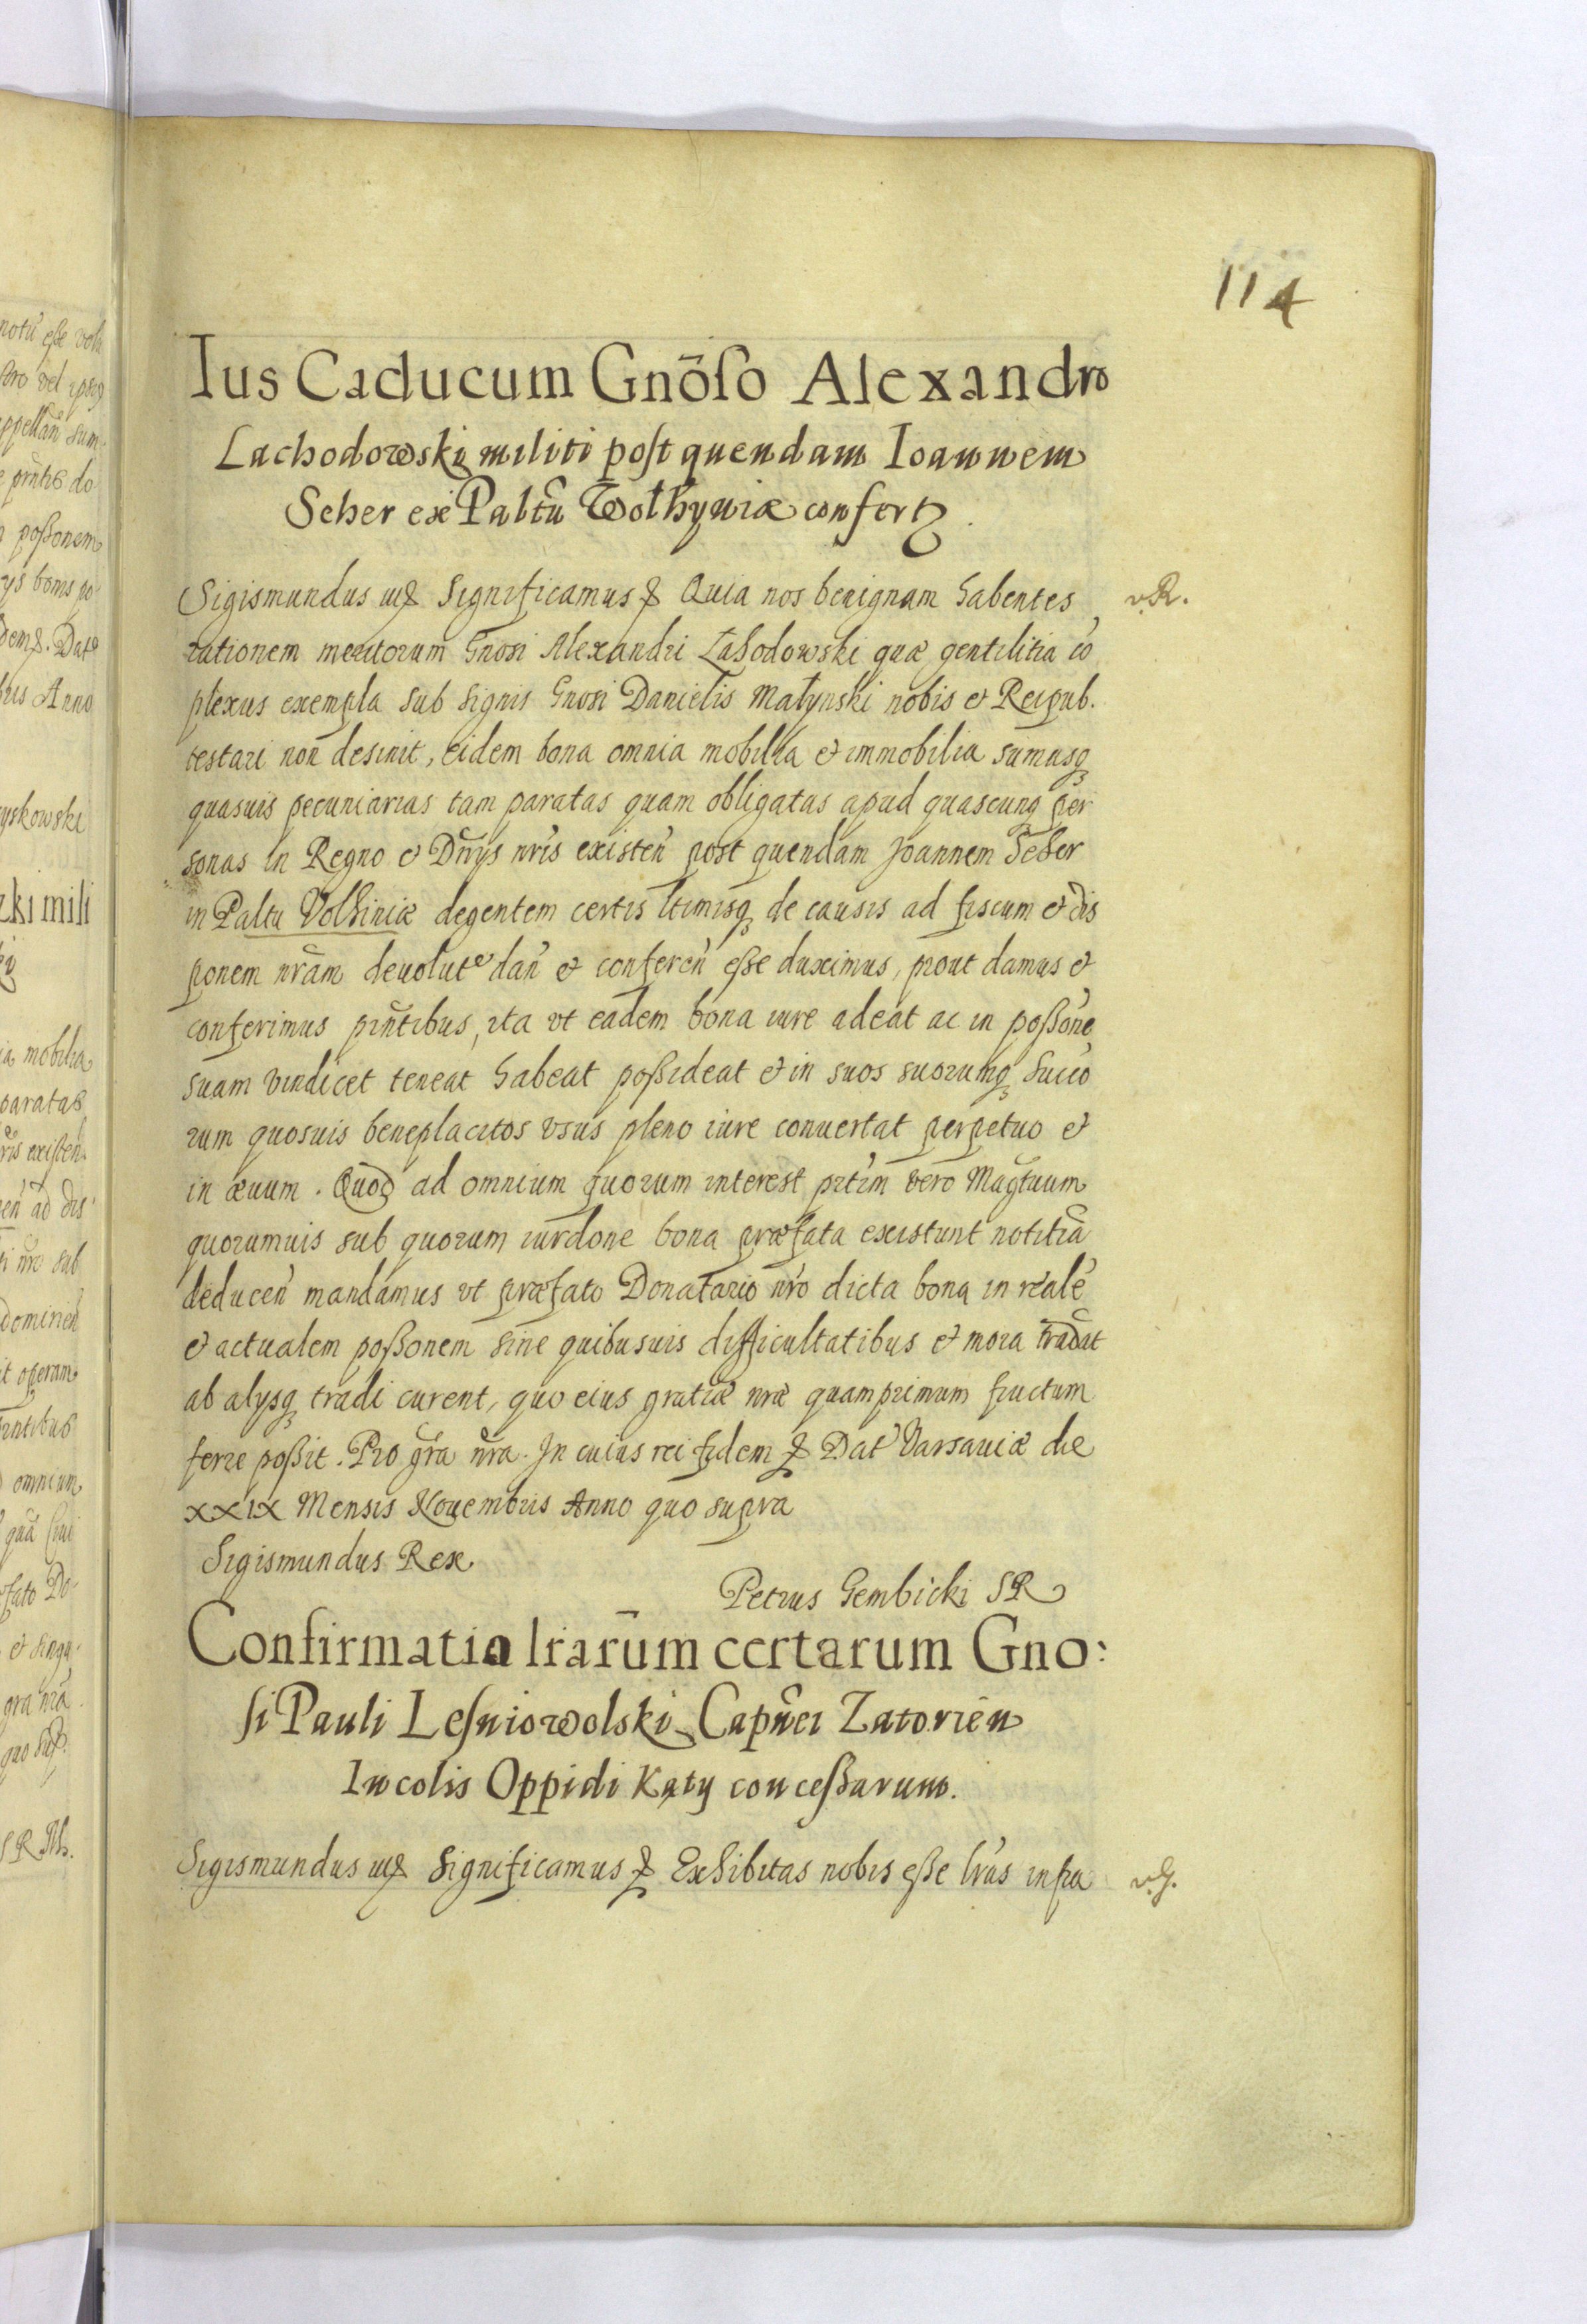 114
Ius Caducum Gnōso Alexandro
Lachodowski militi post quendam Ioannem
Scher ex Paltū Wolhyniæ confert
Sigismundus Significamus & Quia nos benignam habentes
v. R.
rationem meritorum Gnosi Alexandri Lahodowski quæ gentilitia cō
plexus exempla sub signis Gnosi Danielis Małynski nobis et Reipub.
testari non desinit, eidem bona omnia mobilia et immobilia sumasq
quasuis pecuniarias tam paratas quam obligatas apud quascunq per
sonas in Regno et Dnijs nris existen post quendam Joannem Seher
in Paltu Volhiniæ degentem certis ltimisq de causis ad fiscum et dis
ponem nram deuoluta dan et conferen esse duximus, prout damus et
conferimus pntibus, ita vt eadem bona iure adeat ac in possone
suam vindicet teneat habeat possideat et in suos suorumq succo
rum quosuis beneplacitos vsus pleno iure conuertat perpetuo et
in æuum. Quod ad omnium quorum interest ptim vero Magtuum
quorumuis sub quorum iurdone bona præfata existunt notitiā
deducen mandamus vt præfato Donatario nro dicta bona in realē
et actualem possonem sine quibusuis difficultatibus et mora tradāt
ab alysq tradi curent, quo eius gratiæ nræ quamprimum fructum
ferre possit. Pro gra nra. In cuius rei fidem & Dat Varsauiæ die
XXIX Mensis Nouembris Anno quo supra
Sigismundus Rex
Petrus Gembicki SR
Confirmatio lrarum certarum Gno:
si Pauli Lesniowolski Capnei Zatorien
Incolis Oppidi Kąty concessarum.
Sigismundus Significamus & Exhibitas nobis esse lras infra